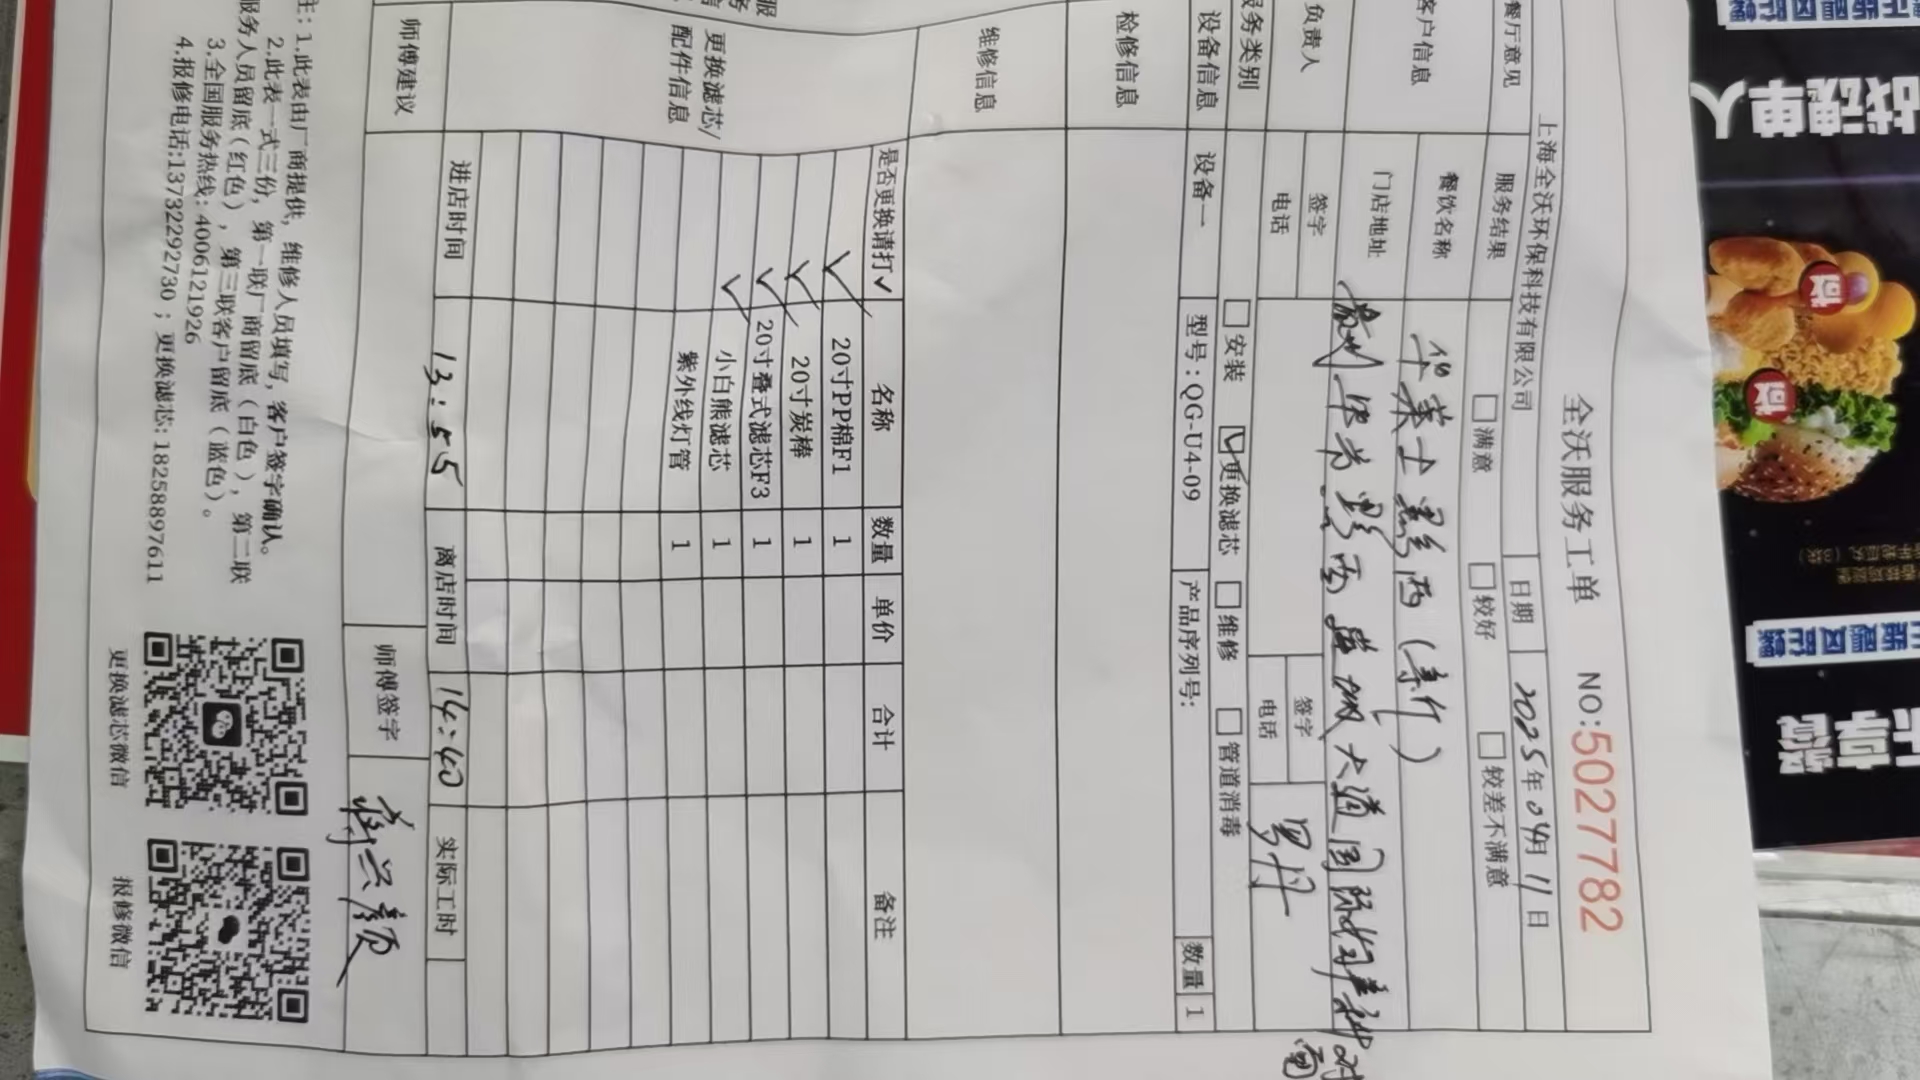 全沃服务工单 NO:5027782
上海全沃环保科技有限公司 日期 2025年04月11日
餐厅意见 服务结果 满意 较好 较差不满意
客户信息 餐饮名称 华莱士
门店地址 大道国际
负责人 签字 签字 罗丹
电话 电话
服务类别 安装 ☑更换滤芯 维修 管道消毒
设备信息 设备一 型号：QG-U4-09 产品序列号： 数量 1
检修信息
维修信息
更换滤芯/配件信息
是否更换请打✓ 名称 数量 单价 合计 备注
✓ 20寸PP棉F1 1
✓ 20寸炭棒 1
✓ 20寸叠式滤芯F3 1
✓ 小白熊滤芯 1
紫外线灯管 1
进店时间 13:55 离店时间 14:40 实际工时
师傅建议 师傅签字
注：1.此表由厂商提供，维修人员填写，客户签字确认。
2.此表一式三份，第一联厂商留底（白色），第二联
服务人员留底（红色），第三联客户留底（蓝色）。
3.全国服务热线：4006121926
4.报修电话:13732292730；更换滤芯：18258897611
更换滤芯微信 报修微信
战魂单人